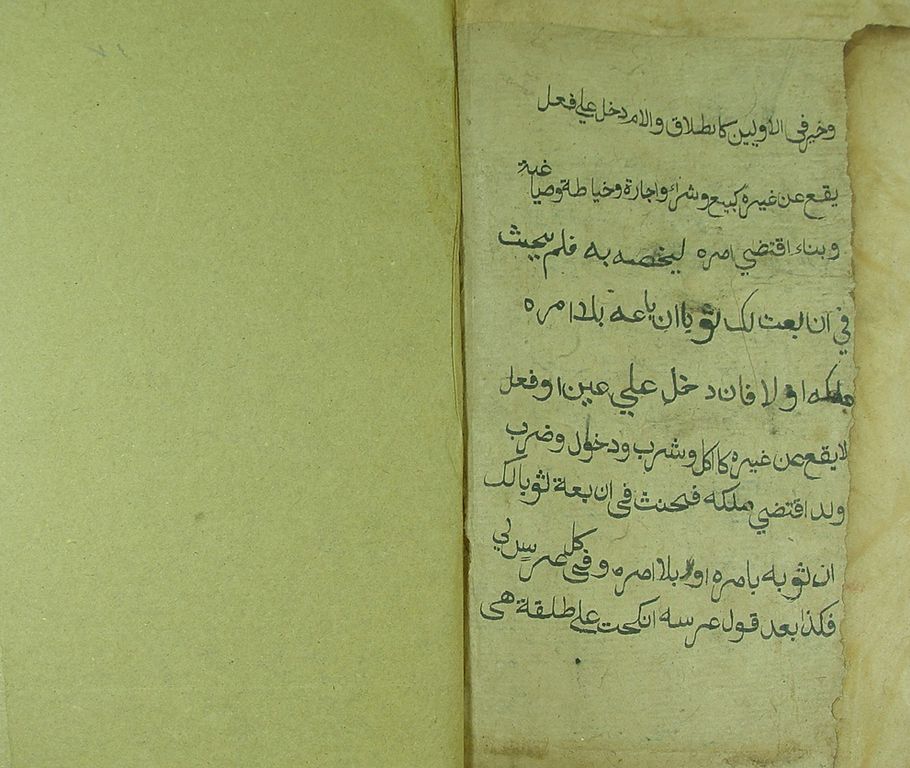 وخير في الاوليين كالطلاق واللام دخل علي فعل
يقع عن غيره كبيع وشراء واجارة وخياطة وصياغة
وبناء اقتضي امره ليخصه به فلم يحيث
في ان بعت لك ثوبا ان باعه بلا امره
ملكه او لا فان دخل علي عين او فعل
لا يقع عن غيره كاكل وشرب ودخول وضرب
ولد اقتضي ملكه فحنث في ان بعة ثوبا لك
ان ثوبه بامره او بلا امره وفي كل عرس لي
فكذا بعد قول عرسه انكحت علي طلقة هي